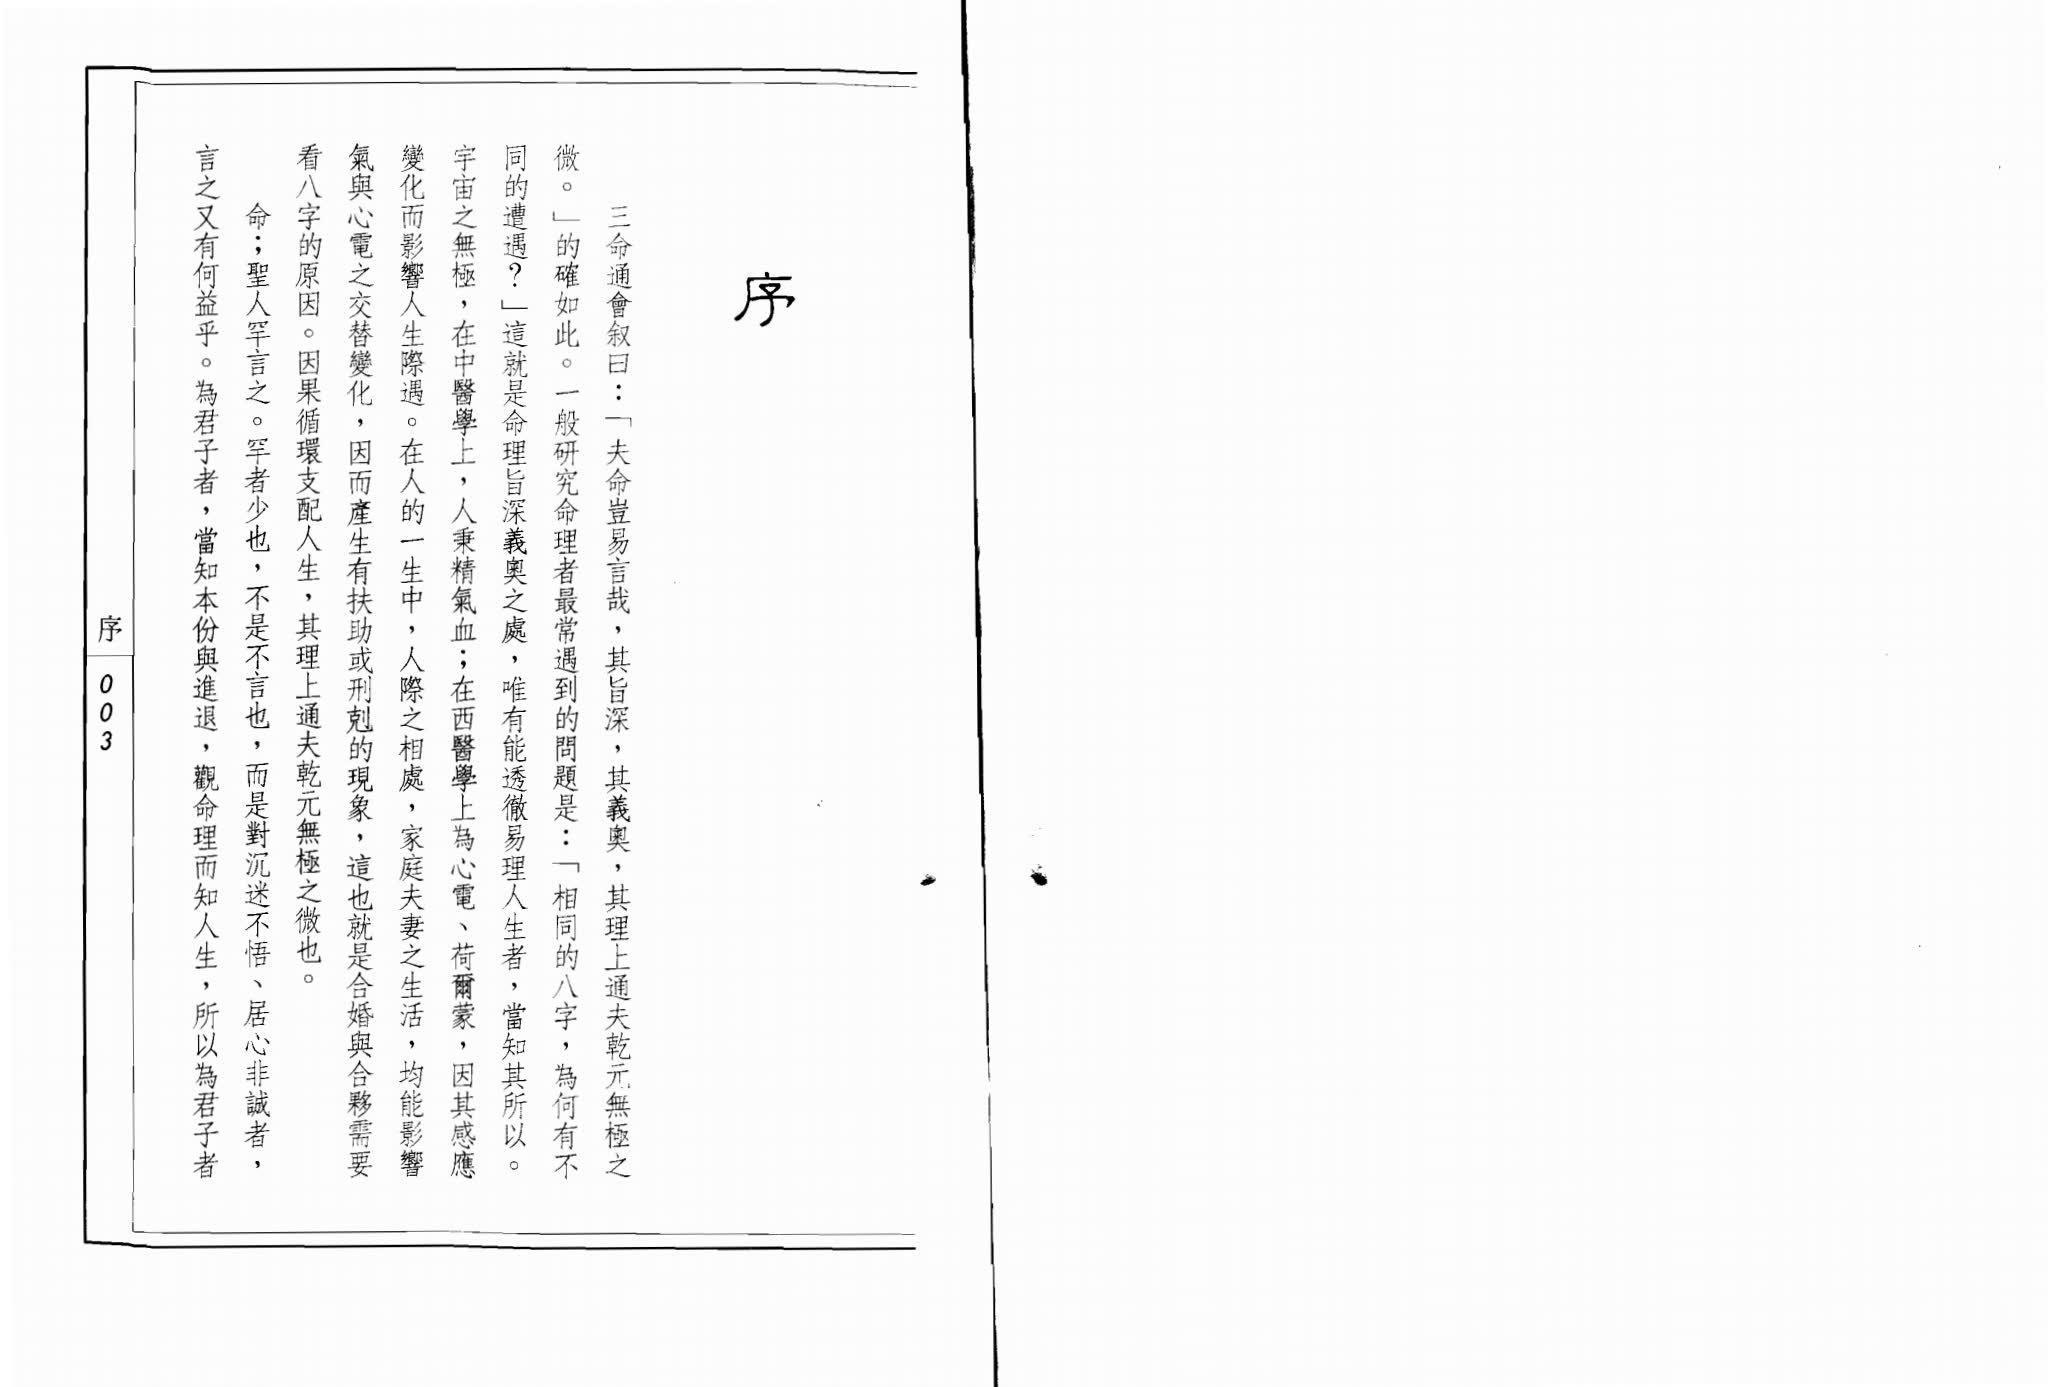 序
三命通會叙曰：「夫命豈易言哉，其旨深，其義奧，其理上通夫乾元無極之
微。」的確如此。一般研究命理者最常遇到的問題是：「相同的八字，為何有不
同的遭遇？」這就是命理旨深義奧之處，唯有能透徹易理人生者，當知其所以。
宇宙之無極，在中醫學上，人秉精氣血；在西醫學上為心電、荷爾蒙，因其感應
變化而影響人生際遇。在人的一生中，人際之相處，家庭夫妻之生活，均能影響
氣與心電之交替變化，因而產生有扶助或刑剋的現象，這也就是合婚與合夥需要
看八字的原因。因果循環支配人生，其理上通夫乾元無極之微也。
命；聖人罕言之。罕者少也，不是不言也，而是對沉迷不悟、居心非誠者，
言之又有何益乎。為君子者，當知本份與進退，觀命理而知人生，所以為君子者
序
003